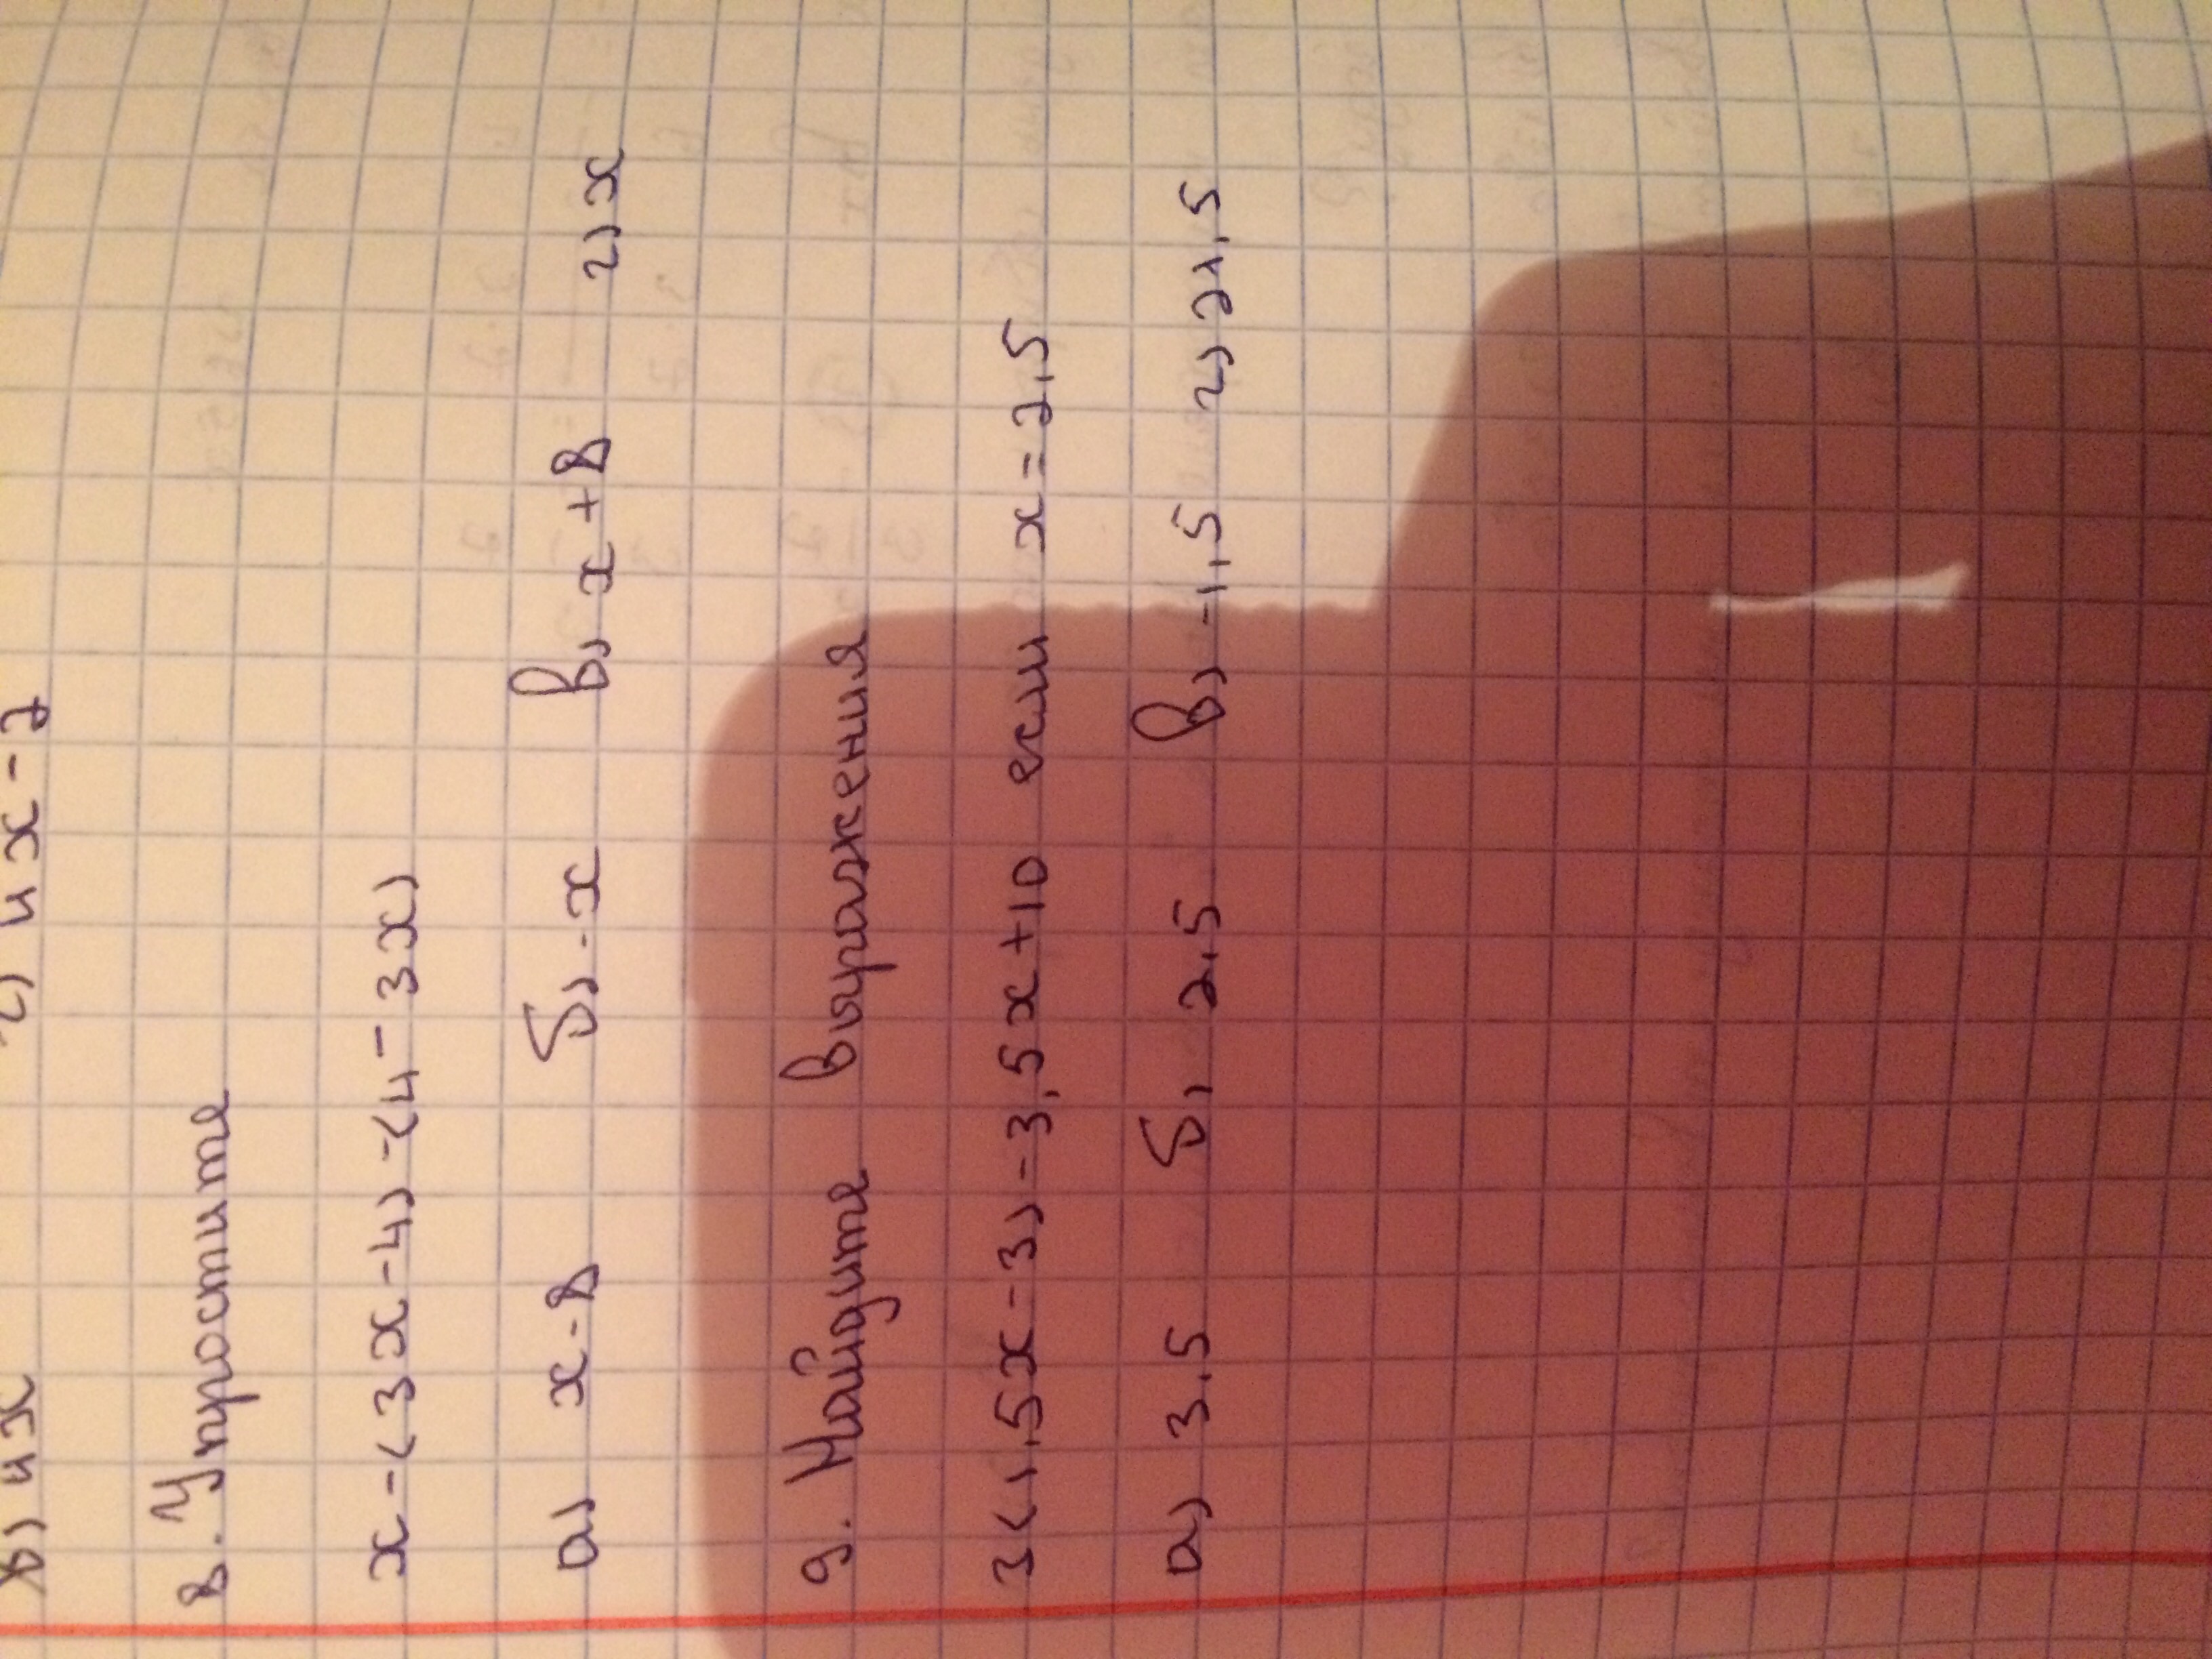 в) 4x г) 4x-2
8. Упростите
x-(3x-4)-(4-3x)
а) x-8 б) -x в) x+8 г) x
9. Найдите выражения
3(1,5x-3)-3,5x+10 если x=2,5
а) 3,5 б) 2,5 в) -1,5 г) 21,5